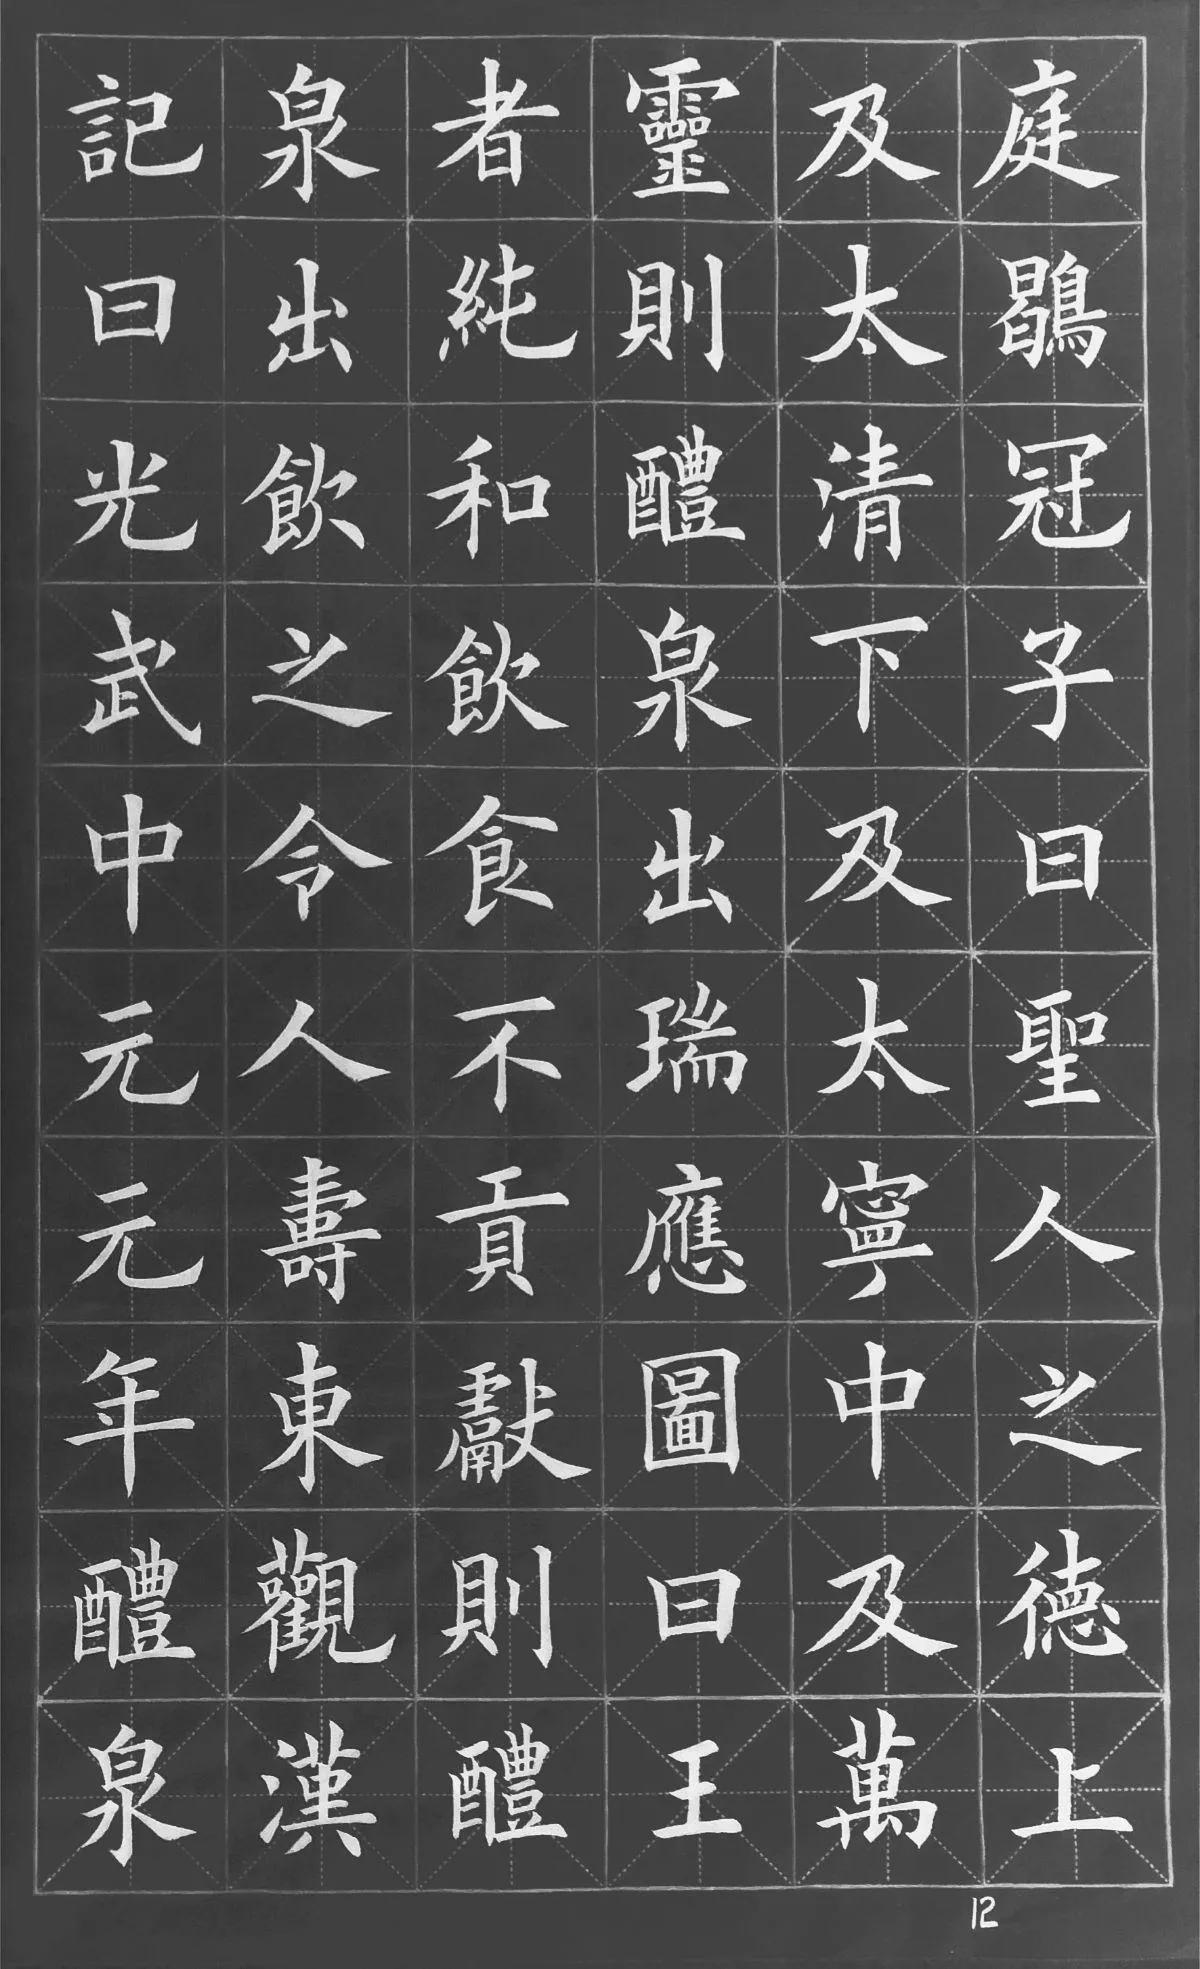 庭鶡冠子曰聖人之德上
及太清下及太寧中及萬
靈則醴泉出瑞應圖曰王
者純和飲食不貢獻則醴
泉出飲之令人壽東觀漢
記曰光武中元元年醴泉
12